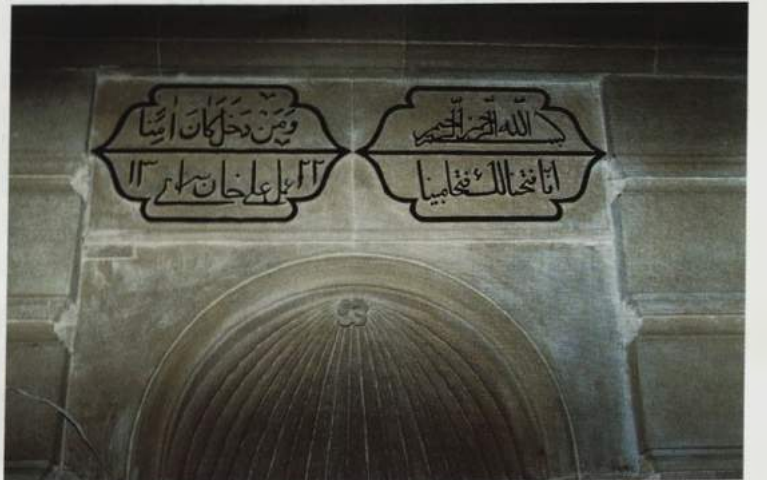 بسم الله الرحمن الرحيم
انا فتحنا لك فتحا مبينا
وَمَنْ دَخَلَ كَانَ اٰمِنًا
۲۲ عمل علی خان ۱۳